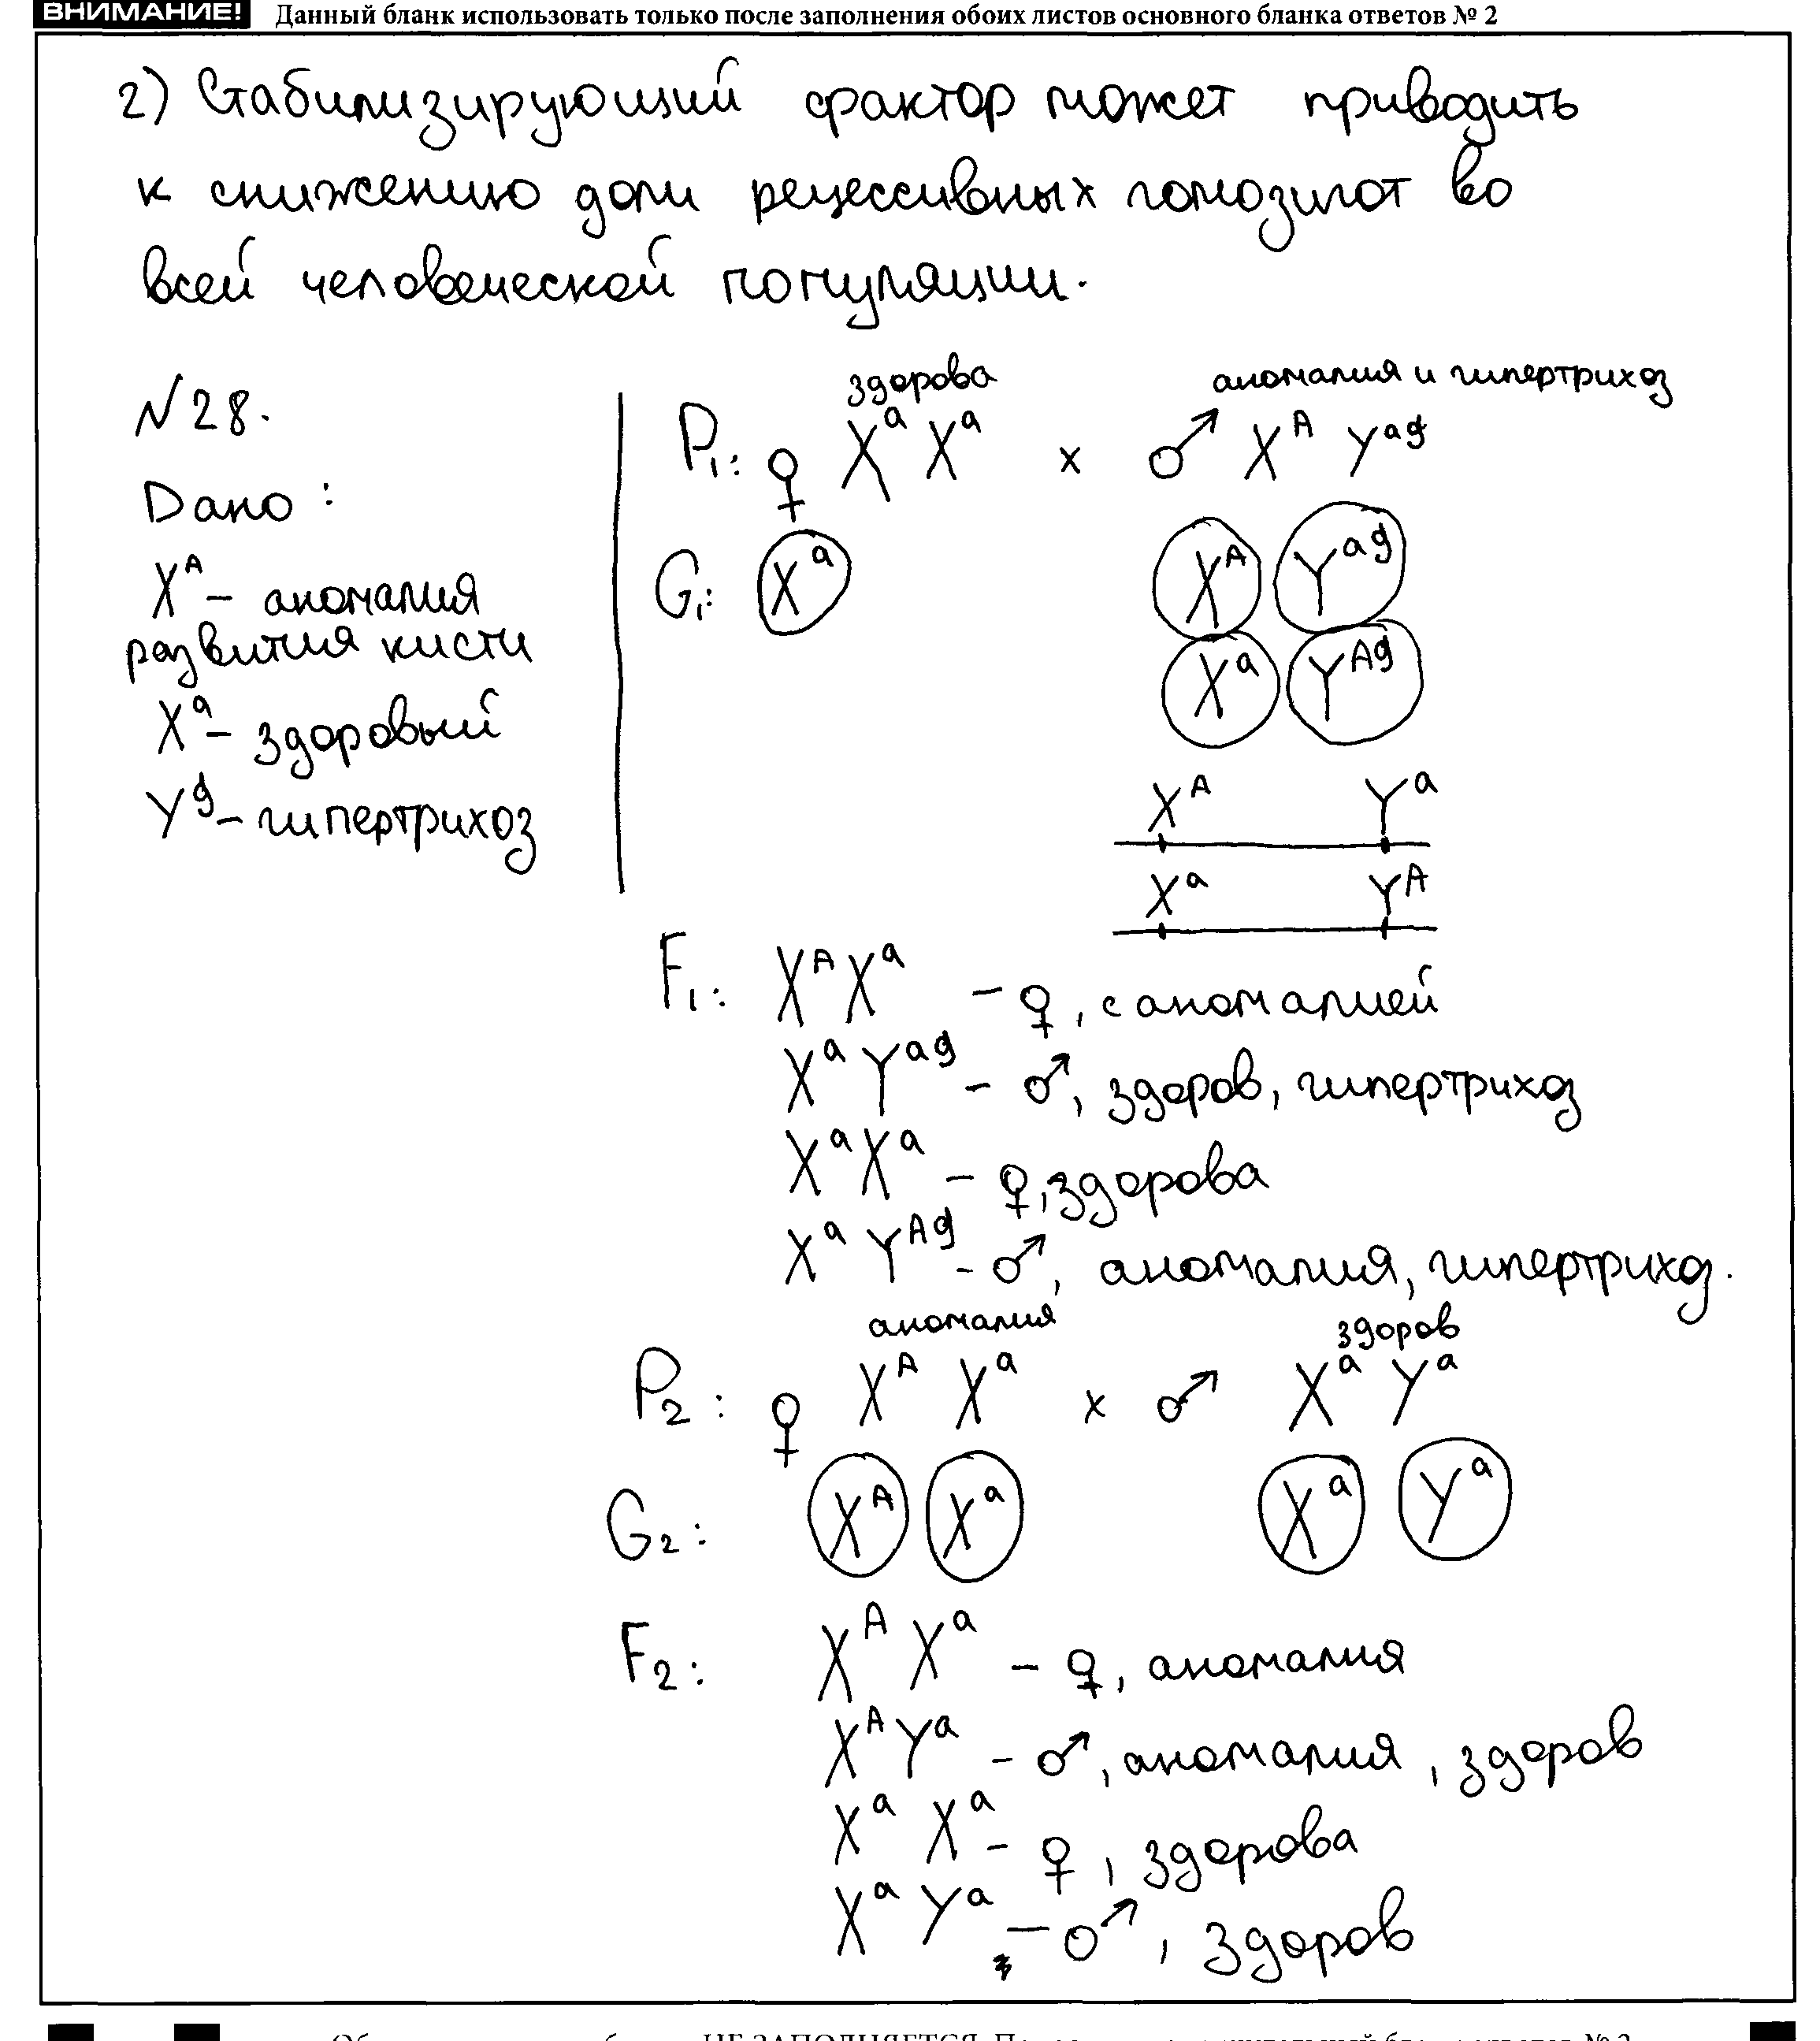 ВНИМАНИЕ! Данный бланк использовать только после заполнения обоих листов основного бланка ответов № 2
2) Стабилизирующий фактор может приводить
к снижению доли рецессивных гомозигот во
всей человеческой популяции.
№28.
Дано:
X^A – аномалия
развития кисти
X^a – здоровый
Y^g – гипертрихоз
здорова аномалия и гипертрихоз
P₁: ♀ X^a X^a × ♂ X^A Y^ag
G₁: X^a X^A Y^ag
X^a Y^Ag
X^A Y^a
X^a Y^A
F₁: X^A X^a – ♀, с аномалией
X^a Y^ag – ♂, здоров, гипертрихоз
X^a X^a – ♀, здорова
X^a Y^Ag – ♂, аномалия, гипертрихоз.
аномалия здоров
P₂: ♀ X^A X^a × ♂ X^a Y^a
G₂: X^A X^a X^a Y^a
F₂: X^A X^a – ♀, аномалия
X^A Y^a – ♂, аномалия, здоров
X^a X^a – ♀, здорова
X^a Y^a – ♂, здоров